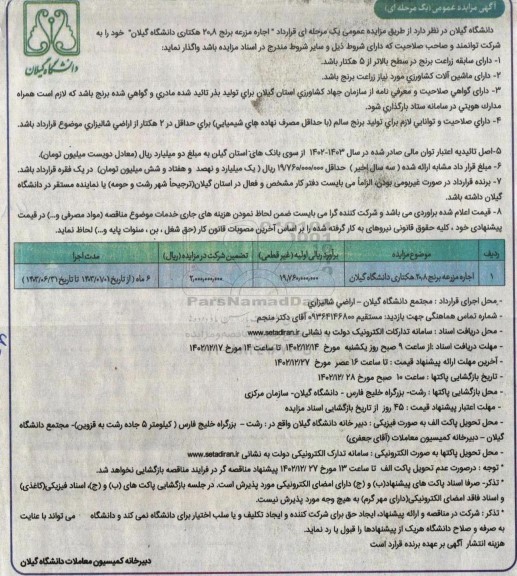 آگهی مزایده عمومی (یک مرحله ای)
دانشگاه گیلان
دانشگاه گیلان در نظر دارد از طریق مزایده عمومی یک مرحله ای قرارداد " اجاره مزرعه برنج ۲۰.۸ هکتاری دانشگاه گیلان" خود را به
شرکت توانمند و صاحب صلاحیت که دارای شروط ذیل و سایر شروط مندرج در اسناد مزایده باشد واگذار نماید:
۱- دارای سابقه زراعت برنج در سطح بالاتر از ۵ هکتار باشد.
۲- دارای ماشین آلات کشاورزی مورد نیاز زراعت برنج باشد.
۳- دارای گواهی صلاحیت و معرفی نامه از سازمان جهاد کشاورزی استان گیلان برای تولید بذر تائید شده مادری و گواهی شده برنج باشد که لازم است همراه
مدارک هویتی در سامانه ستاد بارگذاری شود.
۴- دارای صلاحیت و توانایی لازم برای تولید برنج سالم (با حداقل مصرف نهاده های شیمیایی) برای حداقل در ۲ هکتار از اراضی شالیزاری موضوع قرارداد باشد.
۵-اصل تائیدیه اعتبار توان مالی صادر شده در سال ۱۴۰۳-۱۴۰۲ از سوی بانک های استان گیلان به مبلغ دو میلیارد ریال (معادل دویست میلیون تومان).
۶- مبلغ قرار داد مشابه ارائه شده ( سه سال اخیر ) حداقل ۱۹/۷۶۰/۰۰۰/۰۰۰ ریال ( یک میلیارد و نهصد و هفتاد و شش میلیون تومان) در یک فقره قرارداد باشد.
۷- برنده قرارداد در صورت غیربومی بودن، الزاماً می بایست دفتر کار مشخص و فعال در استان گیلان(ترجیحاً شهر رشت و حومه) یا نماینده مستقر در دانشگاه
گیلان داشته باشد.
۸- قیمت اعلام شده برآوردی می باشد و شرکت کننده گرا می بایست ضمن لحاظ نمودن هزینه های جاری خدمات موضوع مناقصه (مواد مصرفی و...) در قیمت
پیشنهادی خود ، کلیه حقوق قانونی نیروهای به کار گرفته شده را بر اساس آخرین مصوبات قانون کار (حق شغل ، بن ، سنوات پایه و...) لحاظ نماید.
ردیف موضوع مزایده برآورد ریالی اولیه ( غیر قطعی) تضمین شرکت در مزایده (ریال) مدت اجرا
۱ اجاره مزرعه برنج ۲۰.۸ هکتاری دانشگاه گیلان ۱۹,۷۶۰,۰۰۰,۰۰۰ ۲,۰۰۰,۰۰۰,۰۰۰ ۶ ماه ( از تاریخ ۱۴۰۳/۰۱/۰۱ تا تاریخ ۱۴۰۳/۰۶/۳۱ )
ParsNamadData
- محل اجرای قرارداد : مجتمع دانشگاه گیلان – اراضی شالیزاری
- شماره تماس هماهنگی جهت بازدید: مستقیم ۰۹۳۶۴۱۴۶۸۰۰ آقای دکتر منجم
- محل دریافت اسناد : سامانه تدارکات الکترونیک دولت به نشانی www.setadiran.ir
- مهلت دریافت اسناد :از ساعت ۹ صبح روز یکشنبه مورخ ۱۴۰۲/۱۲/۱۴ تا ساعت ۱۴ مورخ ۱۴۰۲/۱۲/۱۷
- آخرین مهلت ارائه پیشنهاد قیمت : تا ساعت ۱۶ عصر مورخ ۱۴۰۲/۱۲/۲۷
- تاریخ بازگشایی پاکتها : ساعت ۱۰ صبح مورخ ۲۸ /۱۴۰۲/۱۲
- محل بازگشایی پاکتها : رشت- بزرگراه خلیج فارس - دانشگاه گیلان- سازمان مرکزی
- مهلت اعتبار پیشنهاد قیمت : ۴۵ روز از تاریخ بازگشایی اسناد مزایده
- محل تحویل پاکت الف به صورت فیزیکی : دبیر خانه دانشگاه گیلان واقع در : رشت – بزرگراه خلیج فارس ( کیلومتر ۵ جاده رشت به قزوین)- مجتمع دانشگاه
گیلان – دبیرخانه کمیسیون معاملات (آقای جعفری)
- محل تحویل پاکتها به صورت الکترونیکی : سامانه تدارک الکترونیکی دولت به نشانی www.setadiran.ir
* توجه : درصورت عدم تحویل پاکت الف تا ساعت ۱۳ مورخ ۲۷ /۱۴۰۲/۱۲ پیشنهاد مناقصه گر در فرایند مناقصه بازگشایی نخواهد شد.
* تذکر- صرفا اسناد پاکت های پیشنهاد(ب) و (ج) دارای امضای الکترونیکی مورد پذیرش است. در جلسه بازگشایی پاکت های (ب) و (ج)، اسناد فیزیکی(کاغذی)
و اسناد فاقد امضای الکترونیکی(دارای مهر گرم) به هیچ وجه مورد پذیرش نیست.
* تذکر : شرکت در مناقصه و ارائه پیشنهاد، ایجاد حق برای شرکت کننده و ایجاد تکلیف و یا سلب اختیار برای دانشگاه نمی کند و دانشگاه می تواند با عنایت
به صرفه و صلاح دانشگاه هریک از پیشنهادها را قبول یا رد نماید.
هزینه انتشار آگهی بر عهده برنده قرارد است
دبیرخانه کمیسیون معاملات دانشگاه گیلان